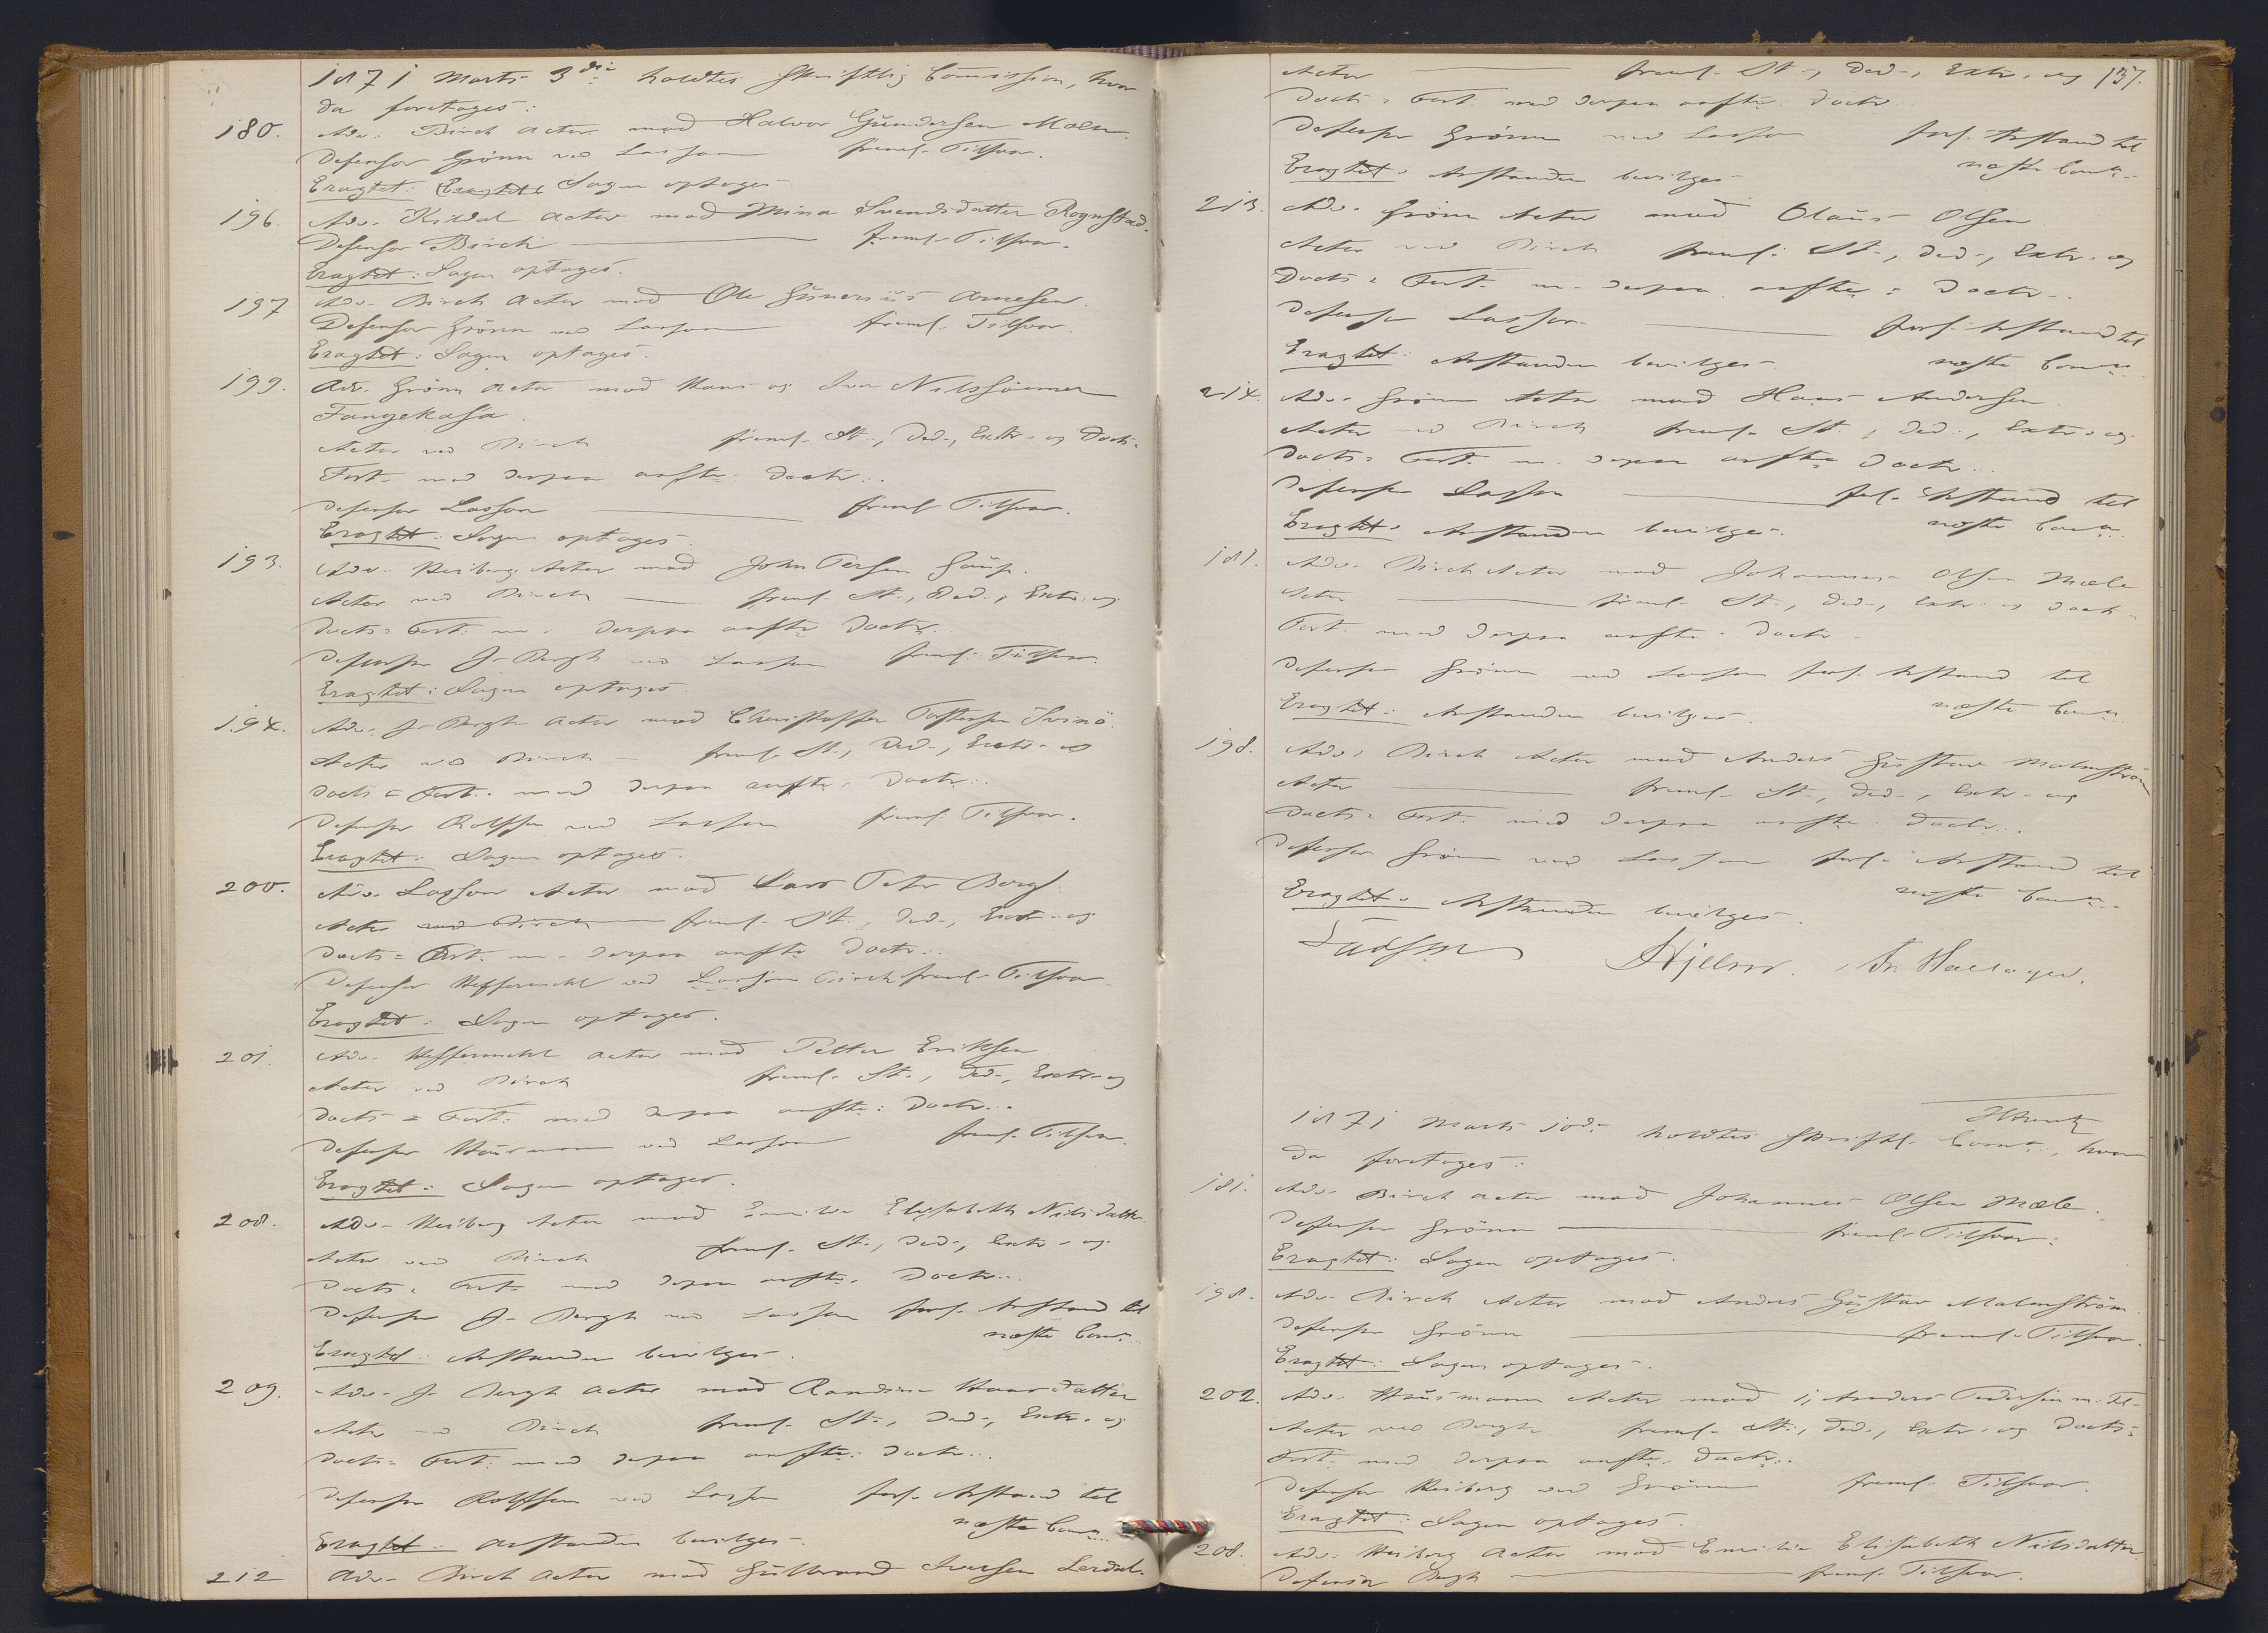 1871 Marts 3die holdtes Skriftlig Commission, hvor
da foretages:
180. Adv. Birch Actor mod Halvor Gundersen Moen.
Defensor Grönn ved Lasson freml. Tilsvar.
Eragtet: Sagen optages
196. Adv. Kildal Actor mod Mina Svendsdatter Rognstad.
Defensor Birch freml. Tilsvar.
Eragtet: Sagen optages.
197 Adv. Birch Actor mod Ole Gunerius Arnesen.
Defensor Grönn ved Lasson freml. Tilsvar.
Eragtet: Sagen optages.
199. Adv. Grönn Actor mod Hans og Iver Nilssönner
Fangekasa.
Actor ved Birch freml. St., Ded., Extr. og Docts.
Fort. med derpaa anfte. Doctr..
Defensor Lasson freml. Tilsvar.
Eragtet: Sagen optages.
193. Adv. Heiberg Actor mod John Persen Haug.
Actor ved Birch freml. St., Ded., Extr. og
Docts. Fort. m. derpaa anfte Doctr.
Defensor J. Bergh ved Lasson freml. Tilsvar.
Eragtet: Sagen optages.
194. Adv. J. Bergh Actor mod Christoffer Svinö.
Actor ved Birch freml. St., Ded., Extr. og
Docts = Fort. med derpaa anfte. Doctr..
Defensor Rolfsen ved Lasson freml. Tilsvar.
Eragtet: Sagen optages.
200. Adv. Lasson Actor mod Lars Peter Berg.
Actor ved Birch freml. St., Ded., Extr. og
Docts = Fort. m. derpaa anfte Doctr..
Defensor Heffermehl ved Lasson Birch freml. Tilsvar
Eragtet: Sagen optages.
201. Adv. Heffermehl Actor mod Petter Eriksen
Actor ved Birch freml. St., Ded., Extr. og
Docts = Fort. med derpaa anfte: Doctr..
Defensor Husmann ved Lasson freml. Tilsvar.
Eragtet: Sagen optages.
208. Adv. Heiberg Actor mod Emilie Elisabeth Nilsdatter.
Actor ved Birch freml. St., Ded., Extr. og
Docts = Fort. med derpaa anfte. Doctr..
Defensor J. Bergh ved Lasson forl. Anstand til
næste Comn.
Eragtet: Anstanden bevilges.
209. Adv. J. Bergh Actor mod Randine Hansdatter
Actor ved Birch freml. St., Ded., Extr. og
Docts = Fort. med derpaa anfte. Doctr..
Defensor Rolfsen ved Lasson forl. Anstand til
næste Comn.
Eragtet: Anstanden bevilges.
212 Adv. Birch Actor mod Gulbrand Iversen Lerdal.
137.
Actor freml. St., Ded., Extr. og
Docts = Fort. med derpaa anfte. Doctr.
Defensor Grönn ved Lasson forl. Anstand til
næste Comn.
Eragtet: Anstanden bevilges.
213. Adv. Grönn Actor mod Olaus Olsen
Actor ved Birch freml. St., Ded., Extr. og
Docts = Fort. m. derpaa anfte: Doctr..
Defensor Lasson forl. Anstand til
næste Comn.
Eragtet: Anstanden bevilges.
214. Adv. Grönn Actor mod Hans Andersen
Actor ved Birch freml. St., Ded., Extr. og
Docts = Fort. m. derpaa anfte Doctr..
Defensor Lasson forl. Anstand til
næste Comn.
Eragtet: Anstanden bevilges.
181. Adv. Birch Actor mod Johannes Olsen Mæle
Actor freml. St., Ded., Extr. og Docts =
Fort. med derpaa anfte. Doctr.
Defensor Grönn ved Lasson forl. Anstand til
næste Comn.
Eragtet: Anstanden bevilges.
198. Adv. Birch Actor mod Anders Gustav Malmström
Actor freml. St., Ded., Extr. og
Docts = Fort. med derpaa anfte. Doctr..
Defensor Grönn ved Lasson forl. Anstand til
næste Comn.
Eragtet: Anstanden bevilges.
Hjelm. Fr. Hallager.
1871 Marts 10de holdtes Skriftl. Comn., hvor
da foretages:
181. Adv. Birch Actor mod Johannes Olsen Mæle.
Defensor Grönn freml. Tilsvar.
Eragtet: Sagen optages.
198. Adv. Birch Actor mod Anders Gustav Malmström
Defensor Grönn freml. Tilsvar.
Eragtet: Sagen optages.
202. Adv. Husmann Actor mod 1, Anders Pedersen m. Fl.
Actor ved Bergh freml. St., Ded., Extr. og Docts =
Fort. med derpaa anfte. Doctr..
Defensor Heiberg ved Grönn freml. Tilsvar.
Eragtet: Sagen optages.
208. Adv. Heiberg Actor mod Emilie Elisabeth Nilsdatter.
Defensor Bergh freml. Tilsvar.